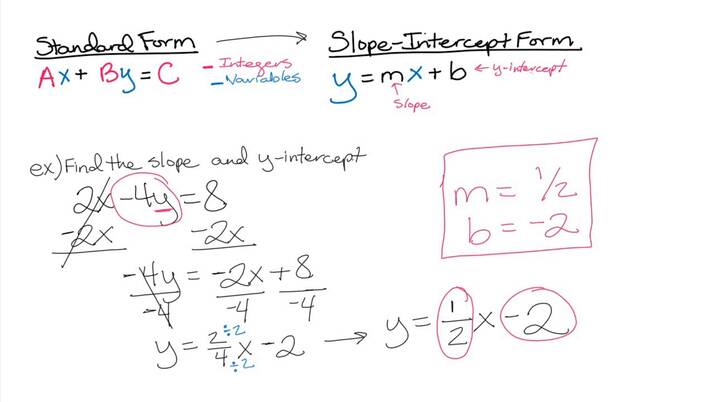 Standard Form → Slope-Intercept Form
Ax + By = C - Integers - Variables y = mx + b ← y-intercept
↑ Slope
ex) Find the slope and y-intercept
2x - 4y = 8
-2x -2x
-4y = -2x + 8
-4 -4 -4
y = 2/4 x - 2 → y = 1/2 x - 2
÷2
÷2
m = 1/2
b = -2